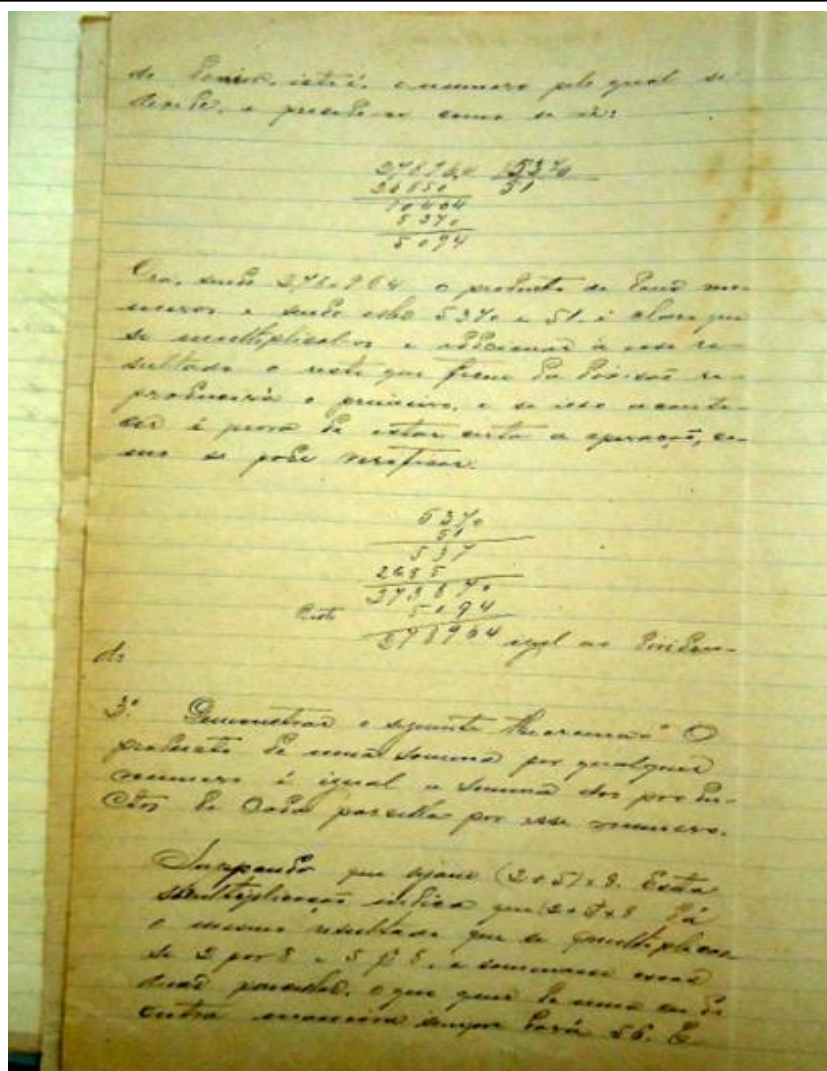 do Divisor, isto é, o numero pelo qual se
devide, e procede-se como se vê:
5370
51
10404
5370
5094
Ora, sendo o producto de Dous nu-
meros e sendo elles 5370 e 51, é claro que
se multiplical-os e addicionar a esse re-
sultado o resto que ficou Da Divisão re-
produzirá o primeiro, e se isso aconte-
cer é prova de estar certa a operação, co-
mo se pode verificar:
5370
51
537
2685
273870
Resto 5094
278964 egual ao Dividen-
do
3º Demonstrar o seguinte theorema: "O
producto de uma somma por qualquer
numero é igual a somma dos produ-
ctos de Cada parcella por esse numero.
Suppondo que sejam (2+5)×8. Esta
multiplicação indica que (2+5)×8 Dá
o mesmo resultado que se multiplicas-
se 2 por 8 e 5 p 8, e sommasse essas
duas parcellas, o que quer de uma ou de
outra maneira sempre Dará 56. E